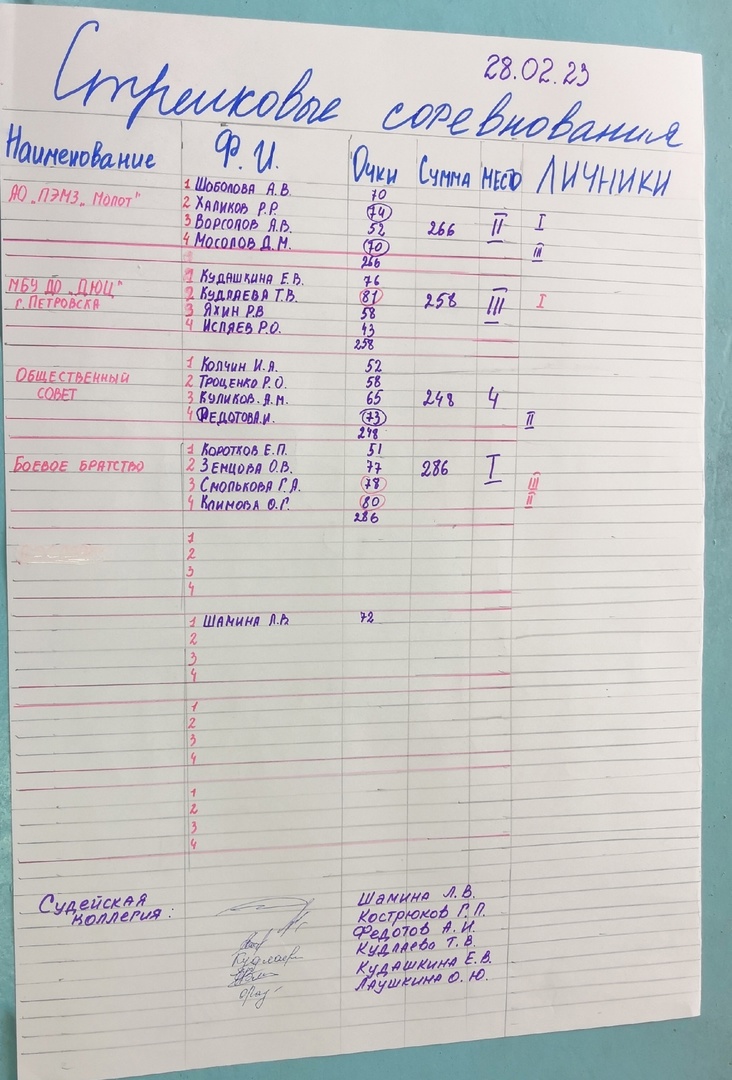 28.02.23
Стрелковые соревнования
Наименование Ф.И. Очки Сумма Место Личники
АО „ПЭМЗ„ Молот"
1 Шоболова А.В. 70
2 Халиков Р.Р. 74 I
3 Ворсолов А.В. 52 266 II
4 Мосолов Д.М. 70 III
266
МБУ ДО „ДЮЦ"
г. Петровска
1 Кудашкина Е.В. 76
2 Кудлаева Т.В. 81 258 III I
3 Яхин Р.В 58
4 Испяев Р.О. 43
258
Общественный
совет
1 Колчин И.А. 52
2 Троценко Р.О. 58
3 Куликов.А.М. 65 248 4
4 Федотов А.И. 73 II
248
Боевое братство
1 Коротков Е.П. 51
2 Земцова О.В. 77 286 I
3 Смолькова Г.А. 78 III
4 Климова О.Г. 80 II
286
1
2
3
4
1 Шамина Л.В 72
2
3
4
1
2
3
4
1
2
3
4
Судейская
коллегия:
Шамина Л.В.
Кострюков Г.П.
Федотов А.И.
Кудлаево Т.В.
Кудашкина Е.В.
Лаушкина О.Ю.
Кудлаева